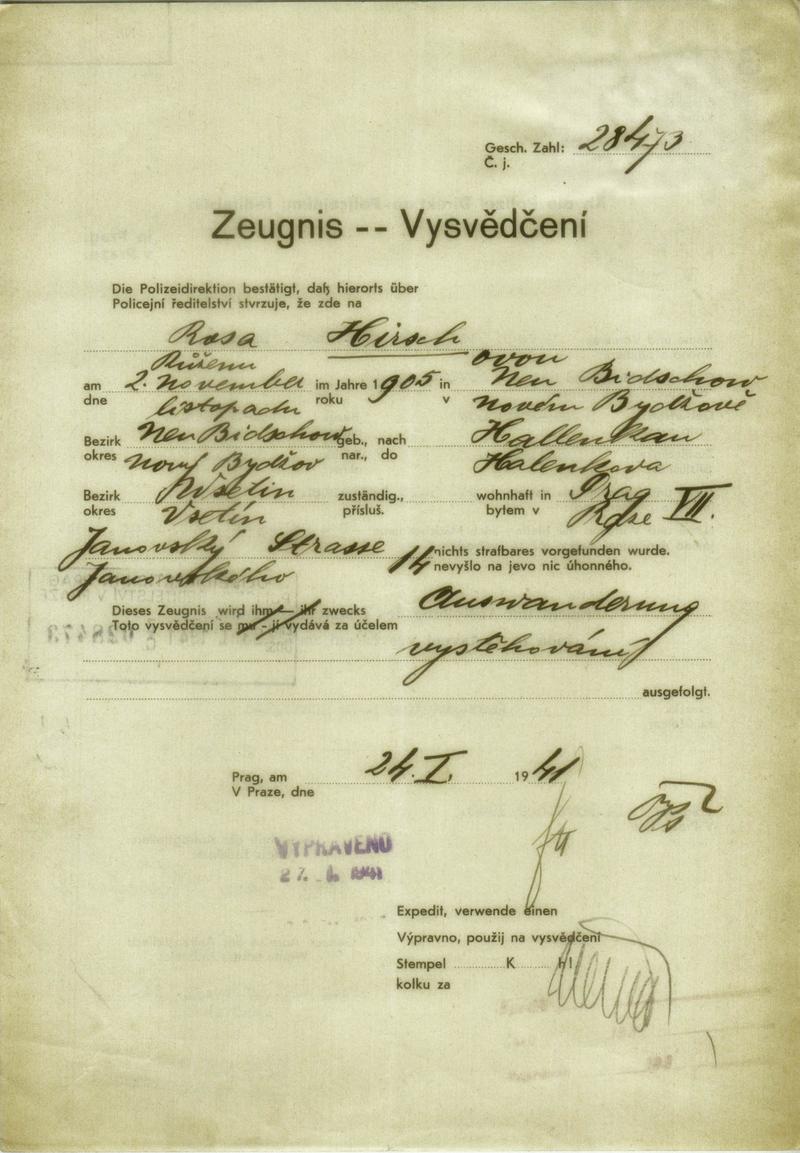 Gesch. Zahl: 28473
Č. j.
Zeugnis -- Vysvědčení
Die Polizeidirektion bestätigt, daß hierorts über
Policejní ředitelství stvrzuje, že zde na
Rosa Hirsch
Růženu ovou
am 2. November im Jahre 1905 in Neu Bidschow
dne listopadu roku v Novém Bydžově
Bezirk Neu Bidschow geb., nach Hallenkau
okres Nový Bydžov nar., do Halenkova
Bezirk Wsetin zuständig., wohnhaft in Prag VII.
okres Vsetín přísluš. bytem v
Janovský Strasse 14 nichts strafbares vorgefunden wurde.
Janovského nevyšlo na jevo nic úhonného.
Dieses Zeugnis wird ihm — ihr zwecks Auswanderung
Toto vysvědčení se mu - jí vydává za účelem
vystěhování
ausgefolgt.
Prag, am 24. I. 1941
V Praze, dne
VYPRAVENO
27. I. 1941
Expedit, verwende einen
Výpravno, použij na vysvědčení
Stempel K hl
kolku za